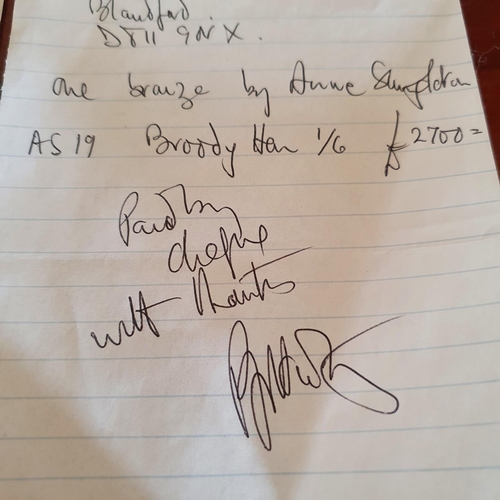 Blandford.
DT11 9NX.
One bronze by Anne Singleton
AS 19 Broody Hen 1/6 £2700=
Paid by
cheque
with thanks